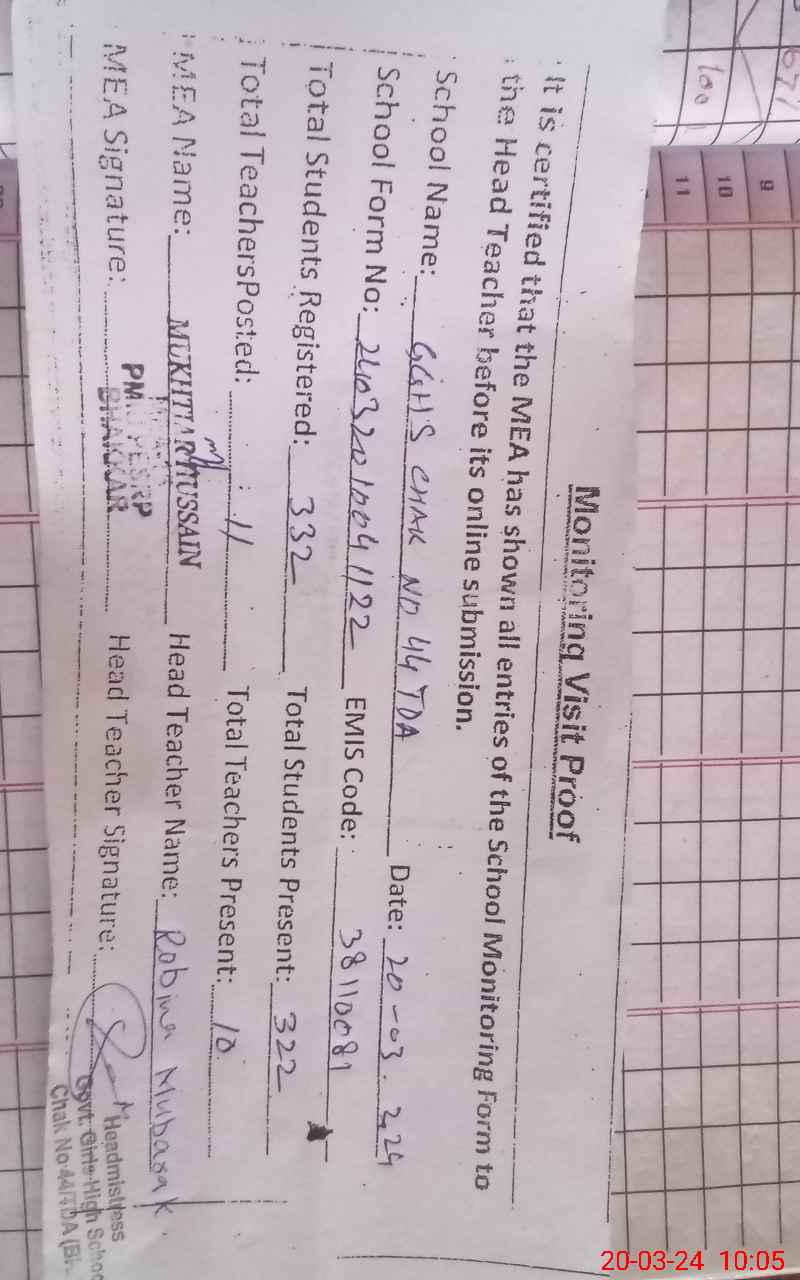 Monitoring Visit Proof
It is certified that the MEA has shown all entries of the School Monitoring Form to
the Head Teacher before its online submission.
School Name: GGHS CHAK NO 44 TDA Date: 20-03.224
School Form No: 24032010041122 EMIS Code: 38110081
Total Students Registered: 332 Total Students Present: 322
Total TeachersPosted: 11 Total Teachers Present: 10
MEA Name: MUKHTIAR HUSSAIN Head Teacher Name: Robina Mubarak
MEA Signature: BHAKKAR Head Teacher Signature:
Headmistress
Govt: Girls High School
Chak No 44/TDA
100
9
10
11
20-03-24 10:05